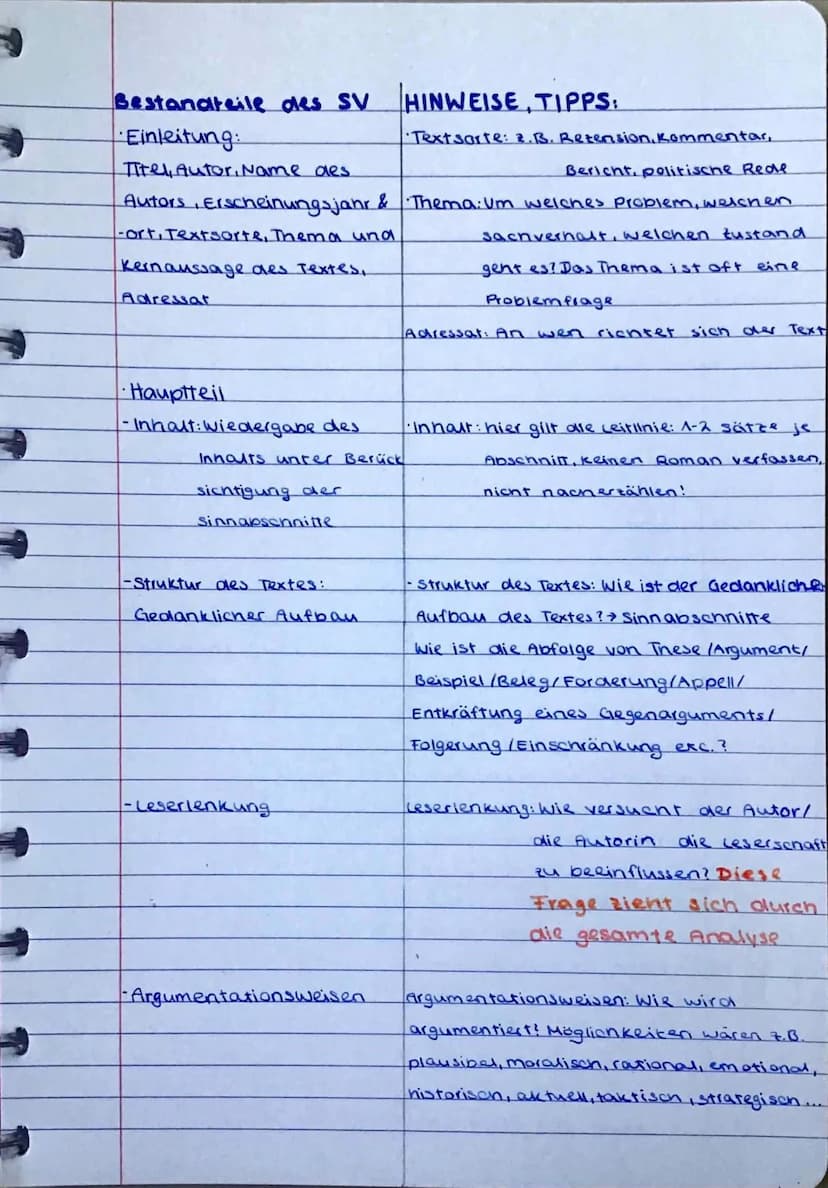 Bestandteile des SV
HINWEISE, TIPPS:
·Einleitung:
Titel, Autor, Name des
Autors, Erscheinungsjahr &
-ort, Textsorte, Thema und
Kernaussage des Textes,
Adressat
·Textsorte: z.B. Retension, Kommentar,
Bericht, politische Rede
·Thema: Um welches Problem, welchen
sachverhalt, welchen zustand
geht es? Das Thema ist oft eine
Problemfrage
Adressat: An wen richtet sich der Text
·Hauptteil
-Inhalt: Wiedergabe des
Inhalts unter Berück
sichtigung der
Sinnabschnitte
·Inhalt: hier gilt die Leitlinie: 1-2 Sätze je
Abschnitt, keinen Roman verfassen,
nicht nacherzählen!
-Struktur des Textes:
Gedanklicher Aufbau
- Struktur des Textes: Wie ist der Gedankliche
Aufbau des Textes? → Sinnabschnitte
Wie ist die Abfolge von These/Argument/
Beispiel/Beleg/Forderung/Appell/
Entkräftung eines Gegenarguments/
Folgerung/Einschränkung etc.?
-Leserlenkung
Leserlenkung: Wie versucht der Autor/
die Autorin die Leserschaft
zu beeinflussen? Diese
Frage zieht sich durch
die gesamte Analyse
-Argumentationsweisen
Argumentationsweisen: Wie wird
argumentiert? Möglichkeiten wären z.B.
plausibel, moralisch, rational, emotional,
historisch, aktuell, taktisch, strategisch...